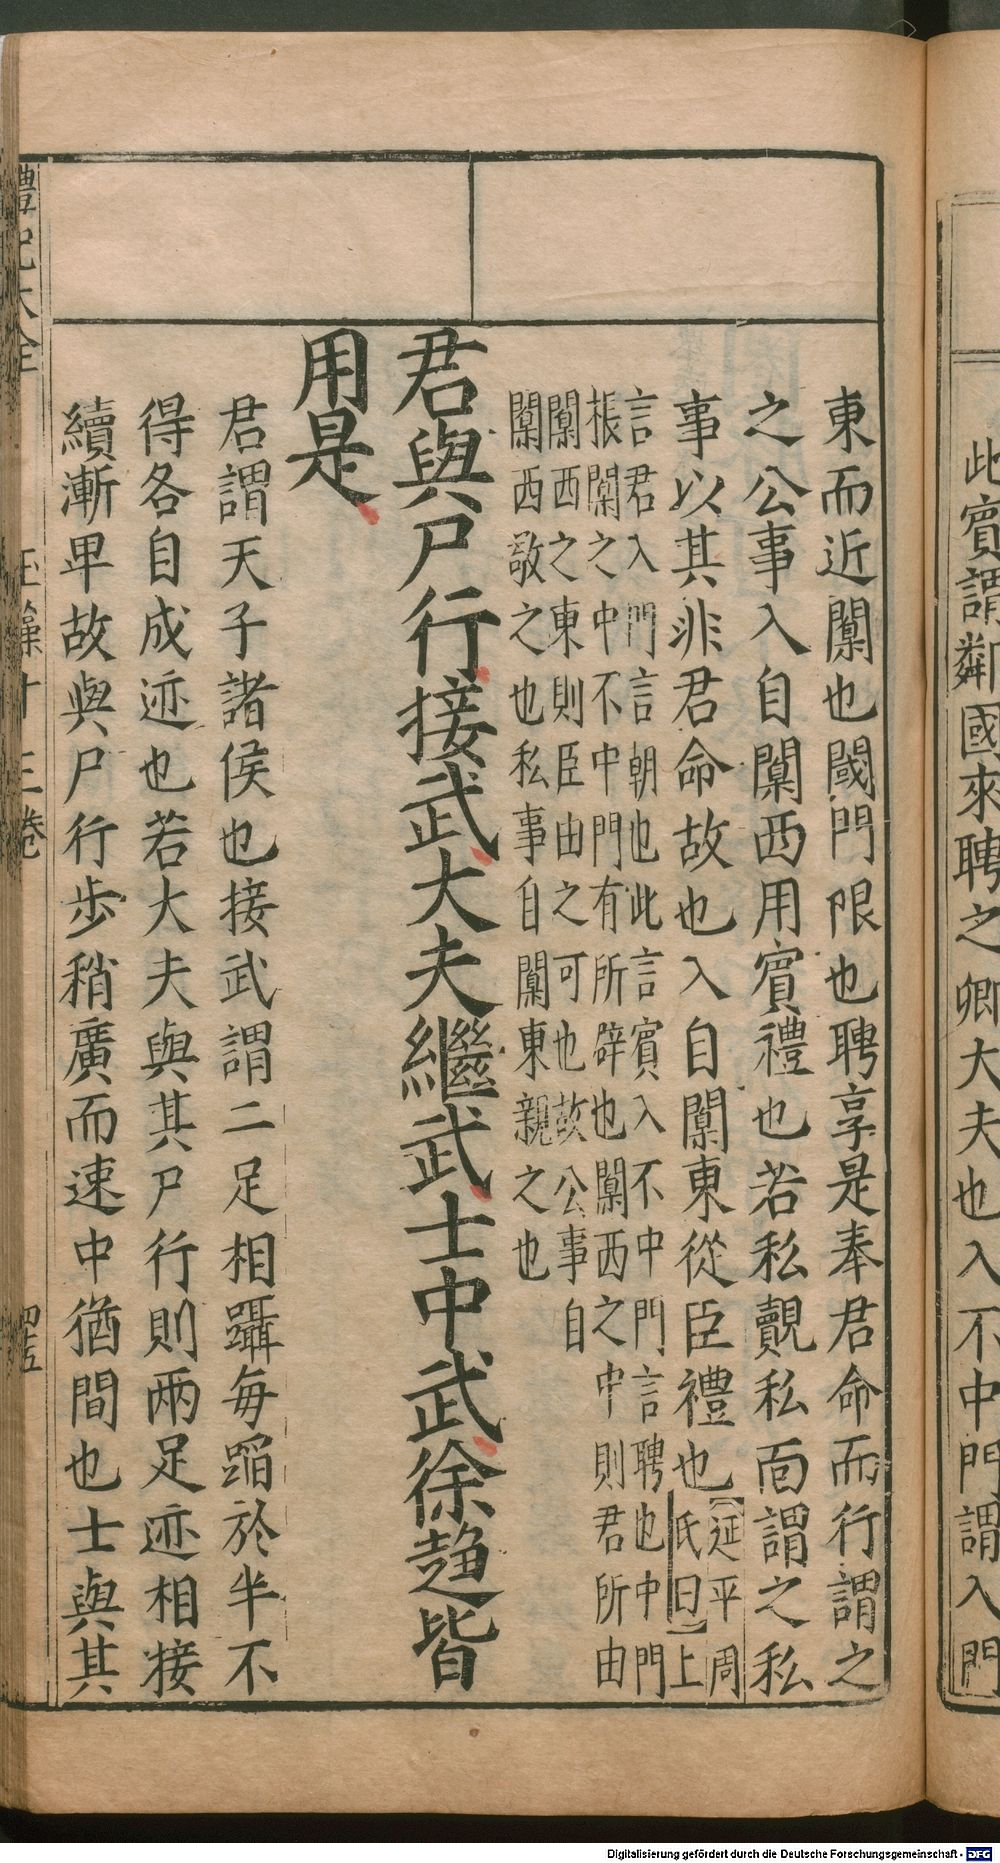 此賓謂鄰國來聘之卿大夫也入不中門謂入門
東而近闑也閾門限也聘享是奉君命而行謂之
之公事入自闑西用賓禮也若私覿私面謂之私
事以其非君命故也入自闑東從臣禮也
延平周
氏曰上
言君入門言朝也此言賓入不中門言聘也中門
棖闑之中不中門有所辟也闑西之中則君所由
闑西之東則臣由之可也故公事自
闑西敬之也私事自闑東親之也
君與尸行接武大夫繼武士中武徐趨皆
用是
君謂天子諸侯也接武謂二足相躡每蹈於半不
得各自成迹也若大夫與其尸行則兩足迹相接
續漸卑故與尸行步稍廣而速中猶間也士與其
禮記大全
玉藻十三卷
四五
Digitalisierung gefördert durch die Deutsche Forschungsgemeinschaft - DFG